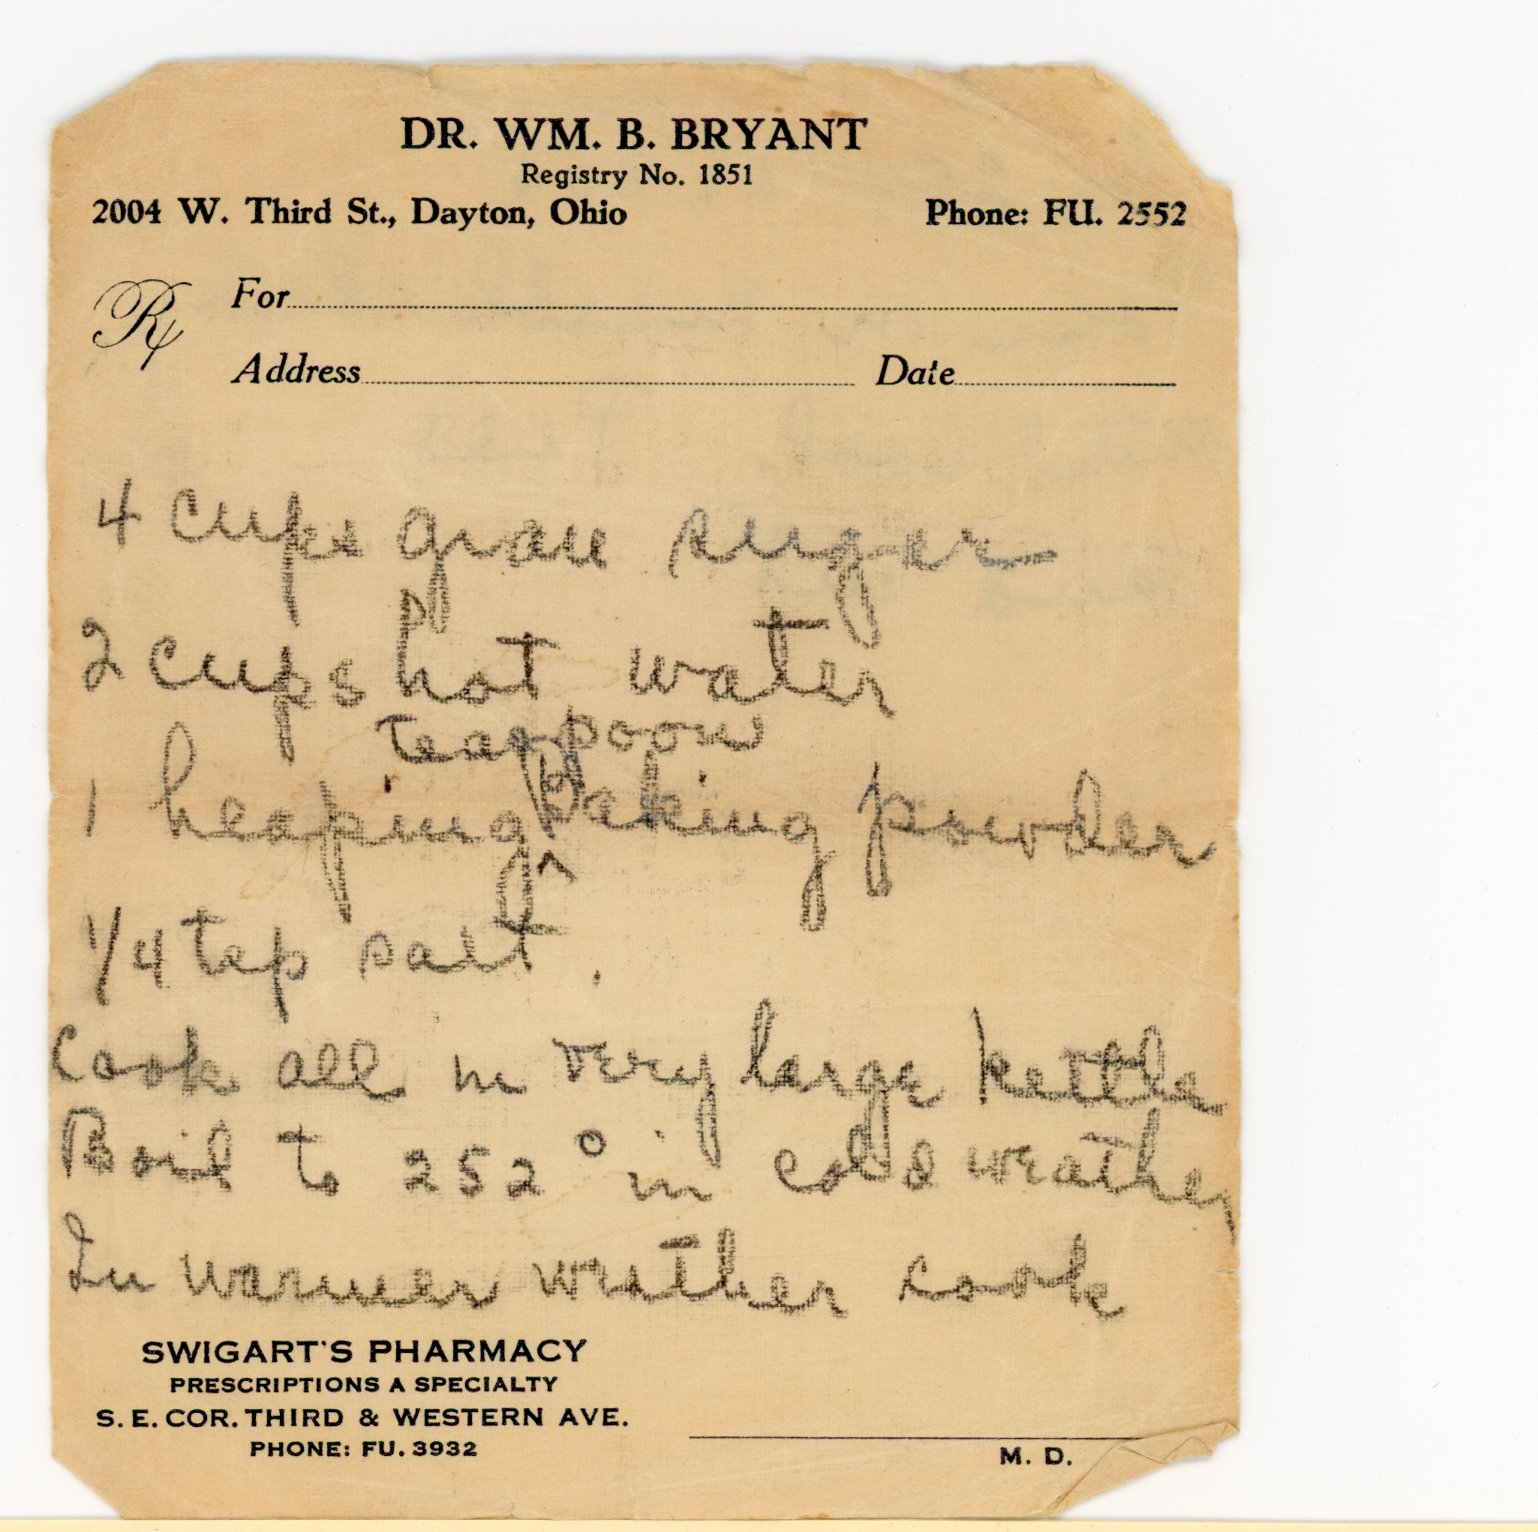 DR. WM. B. BRYANT
Registry No. 1851
2004 W. Third St., Dayton, Ohio Phone: FU. 2552
Rx For
Address Date
4 cups gran sugar
2 cups hot water
teaspoon
1 heaping ^ baking powder
1/4 tsp salt.
Cook all in very large kettle
Boil to 252° in cold weather
In warmer weather cook
SWIGART'S PHARMACY
PRESCRIPTIONS A SPECIALTY
S. E. COR. THIRD & WESTERN AVE.
PHONE: FU. 3932
M. D.